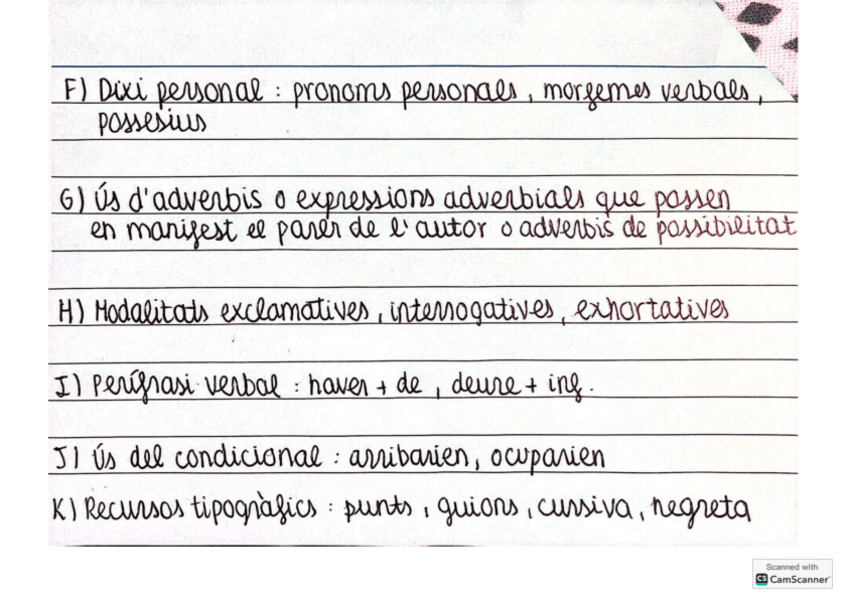 F) Dixi personal : pronoms personals, morfemes verbals,
possesius
G) Ús d'adverbis o expressions adverbials que posen
en manifest el parer de l'autor o adverbis de possibilitat
H) Modalitats exclamatives, interrogatives, exhortatives
I) Perífrasi verbal : haver + de, deure + inf.
J) Ús del condicional : arribarien, ocuparien
K) Recursos tipogràfics : punts, guions, cursiva, negreta
Scanned with
CS CamScanner